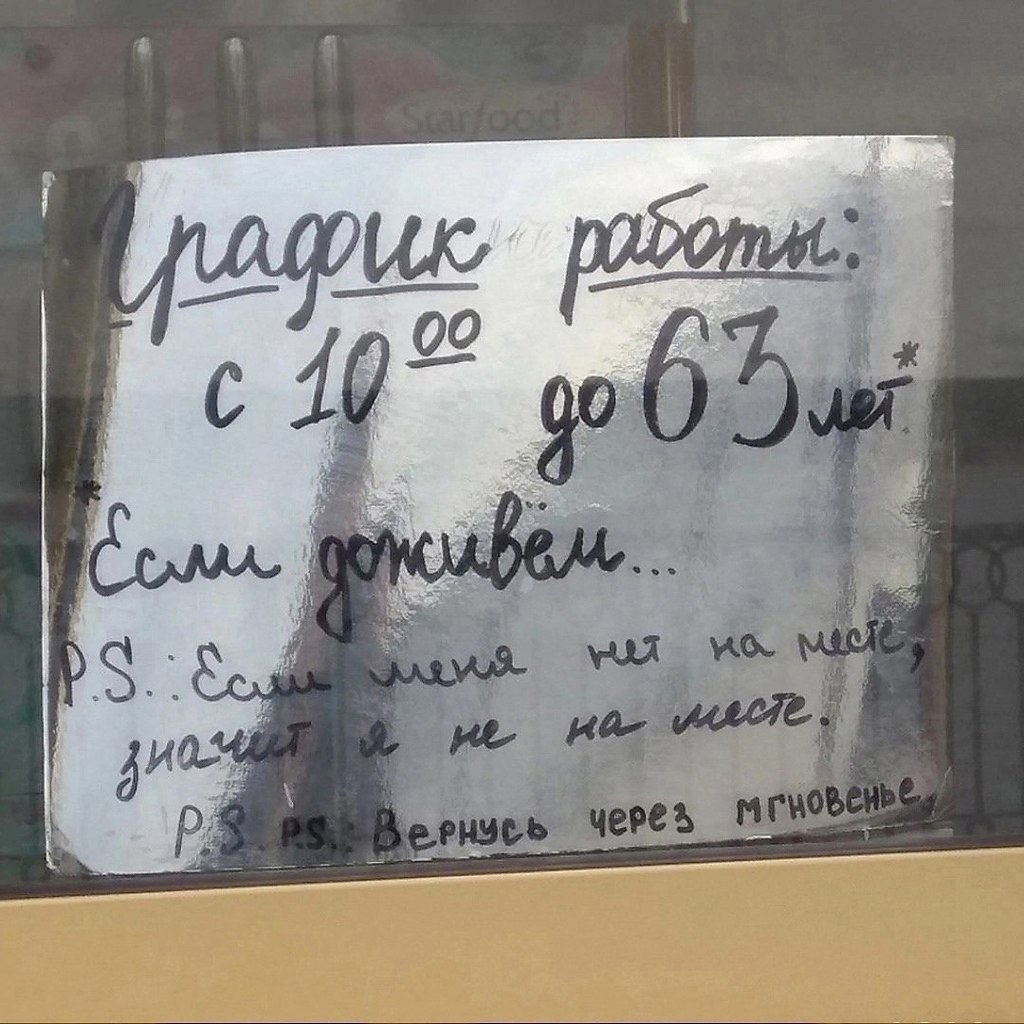 Starfood
График работы:
с 10⁰⁰ до 63 лет*
*Если доживём...
P.S.: Если меня нет на месте,
значит я не на месте.
P.S. P.S.: Вернусь через мгновенье,